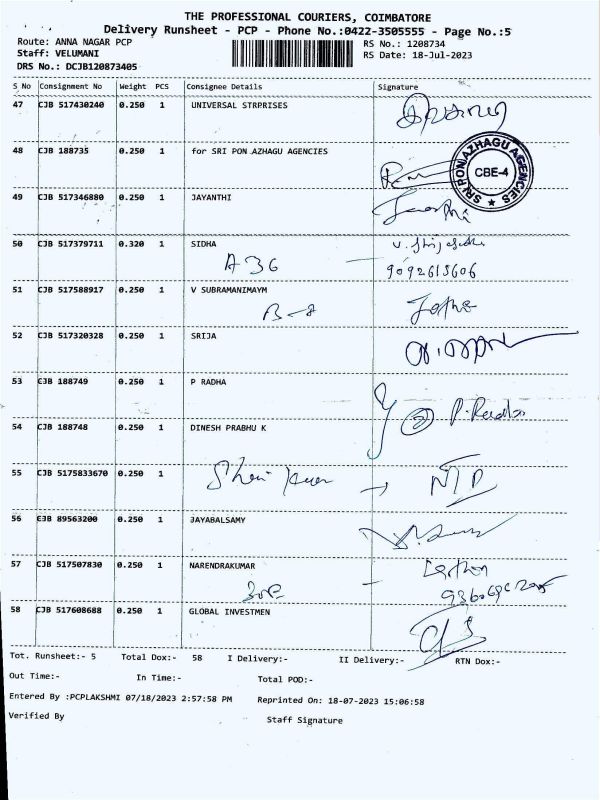 THE PROFESSIONAL COURIERS, COIMBATORE
Delivery Runsheet - PCP - Phone No.:0422-3505555 - Page No.:5
Route: ANNA NAGAR PCP RS No.: 1208734
Staff: VELUMANI RS Date: 18-Jul-2023
DRS No.: DCJB120873405
S No Consignment No Weight PCS Consignee Details Signature
47 CJB 517430240 0.250 1 UNIVERSAL STRPRISES
48 CJB 188735 0.250 1 for SRI PON AZHAGU AGENCIES
SRI PON AZHAGU AGENCIES CBE-4
49 CJB 517346880 0.250 1 JAYANTHI
50 CJB 517379711 0.320 1 SIDHA
A 36
51 CJB 517588917 0.250 1 V SUBRAMANIMAYM
B-8
52 CJB 517320328 0.250 1 SRIJA
53 CJB 188749 0.250 1 P RADHA
P. Radha
54 CJB 188748 0.250 1 DINESH PRABHU K
55 CJB 5175833670 0.250 1
56 CJB 89563200 0.250 1 JAYABALSAMY
57 CJB 517507830 0.250 1 NARENDRAKUMAR
58 CJB 517608688 0.250 1 GLOBAL INVESTMEN
Tot. Runsheet:- 5 Total Dox:- 58 I Delivery:- II Delivery:- RTN Dox:-
Out Time:- In Time:- Total POD:-
Entered By :PCPLAKSHMI 07/18/2023 2:57:58 PM Reprinted On: 18-07-2023 15:06:58
Verified By Staff Signature